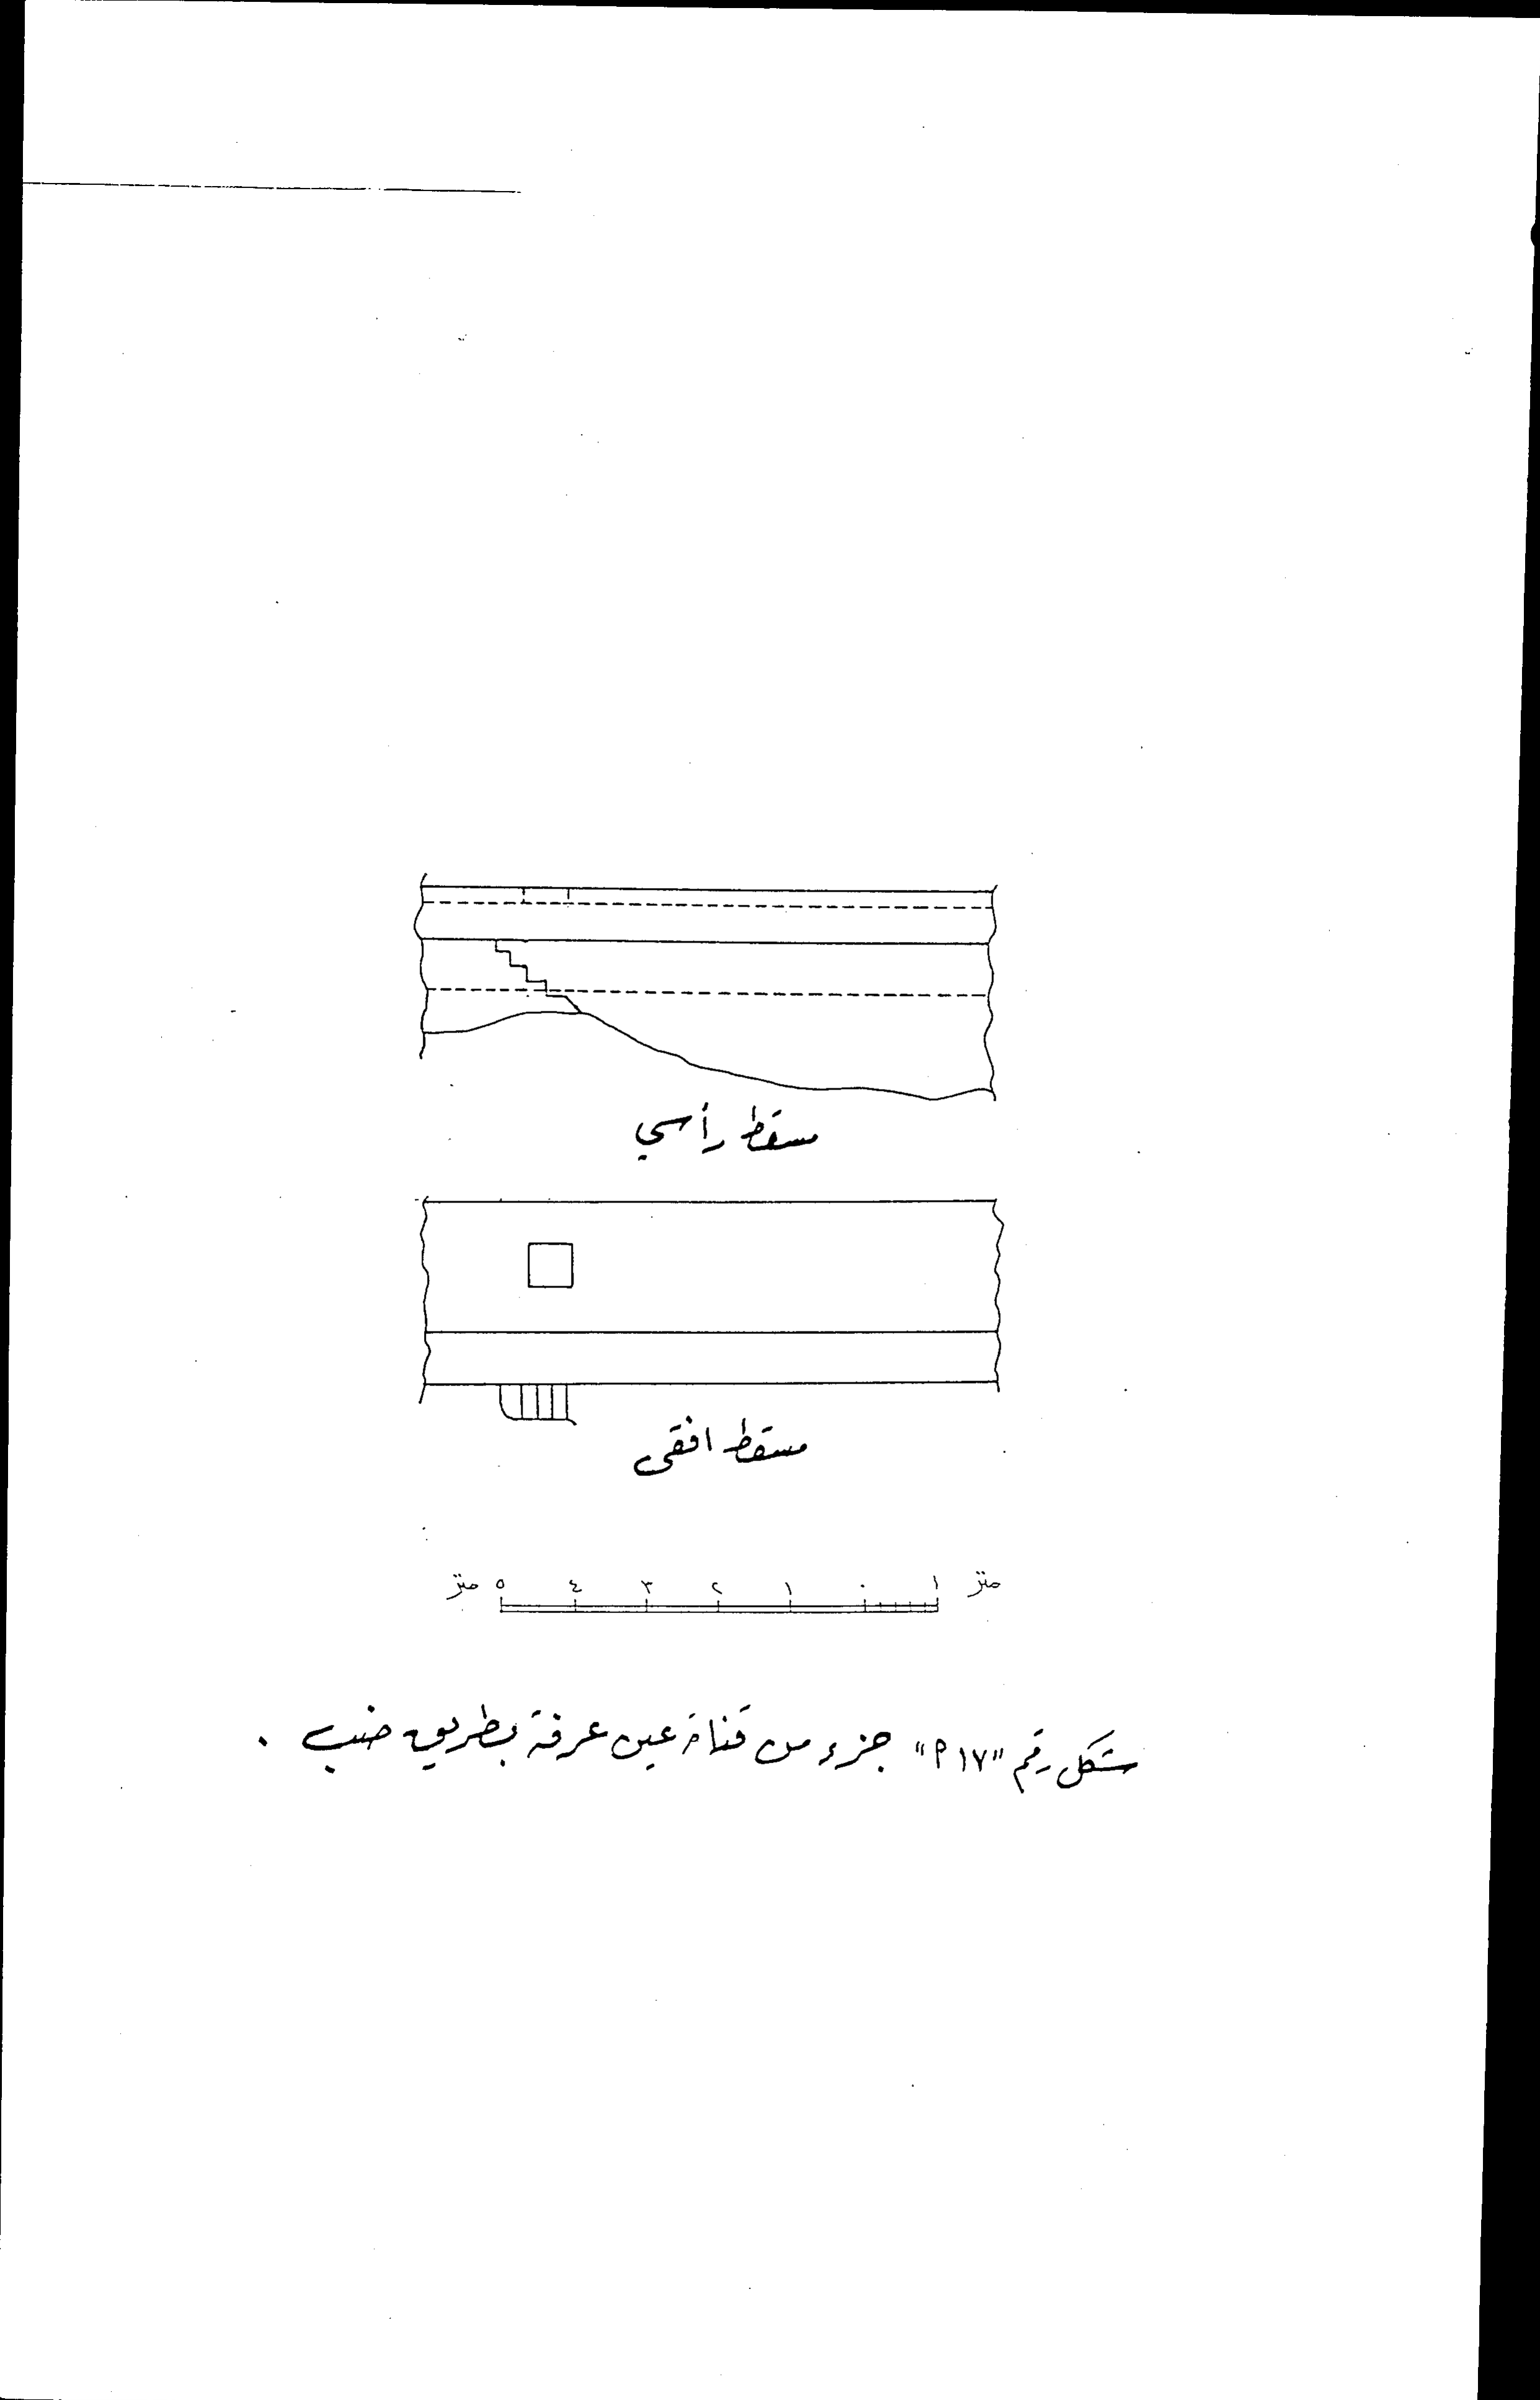 مسقط رأسي
مسقط افقى
متر ٥ ٤ ٣ ٢ ١ ٠ ١ متر
شكل رقم "١٧م" جزء من قناة عين عرفة بطريق ضب .